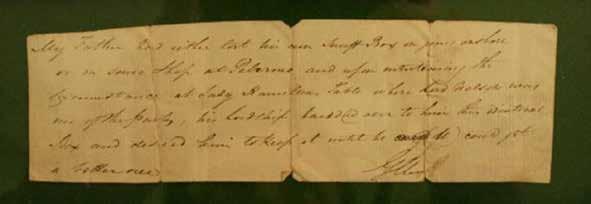 My Father had either lost his own Snuff Box in going on shore
or in some Shop at Palermo, and upon mentioning the
Circumstance at Lady Hamiltons Table where Lord Nelson was
one of the party, his Lordship handed over to him this identical
Box and desired him to keep it until he could get
a better one